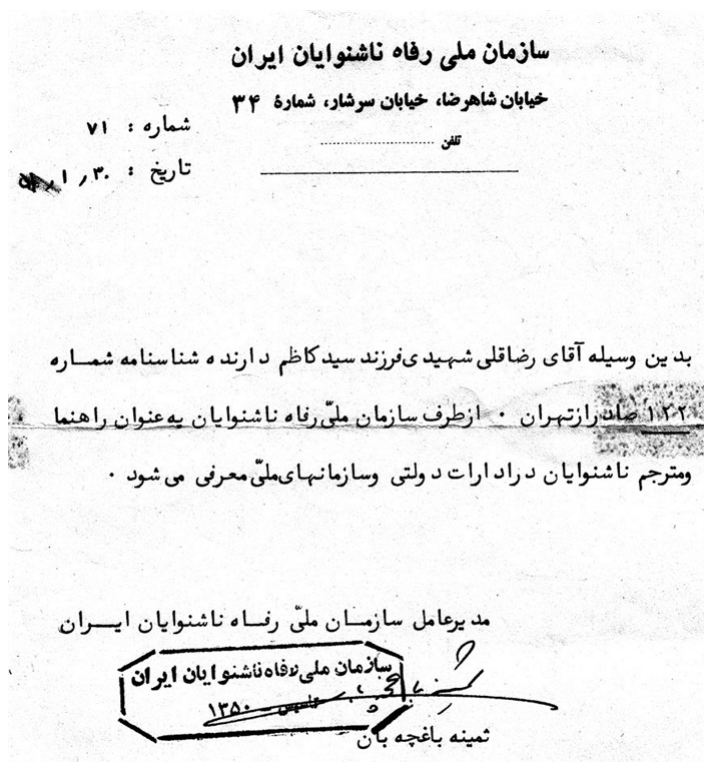 سازمان ملی رفاه ناشنوایان ایران
خیابان شاهرضا، خیابان سرشار، شمارهٔ ۳۴
تلفن
شماره : ۷۱
تاریخ : ۱٫۳۰
بدین وسیله آقای رضاقلی شهیدی فرزند سید کاظم دارنده شناسنامه شماره
۱۲۲ صادر از تهران ۰ از طرف سازمان ملّی رفاه ناشنوایان به عنوان راهنما
ومترجم ناشنوایان در ادارات دولتی وسازمانهای ملّی معرفی می شود ۰
مدیرعامل سازمان ملّی رفاه ناشنوایان ایران
سازمان ملی رفاه ناشنوایان ایران
تاسیس - ۱۳۵۰
ثمینه باغچه بان